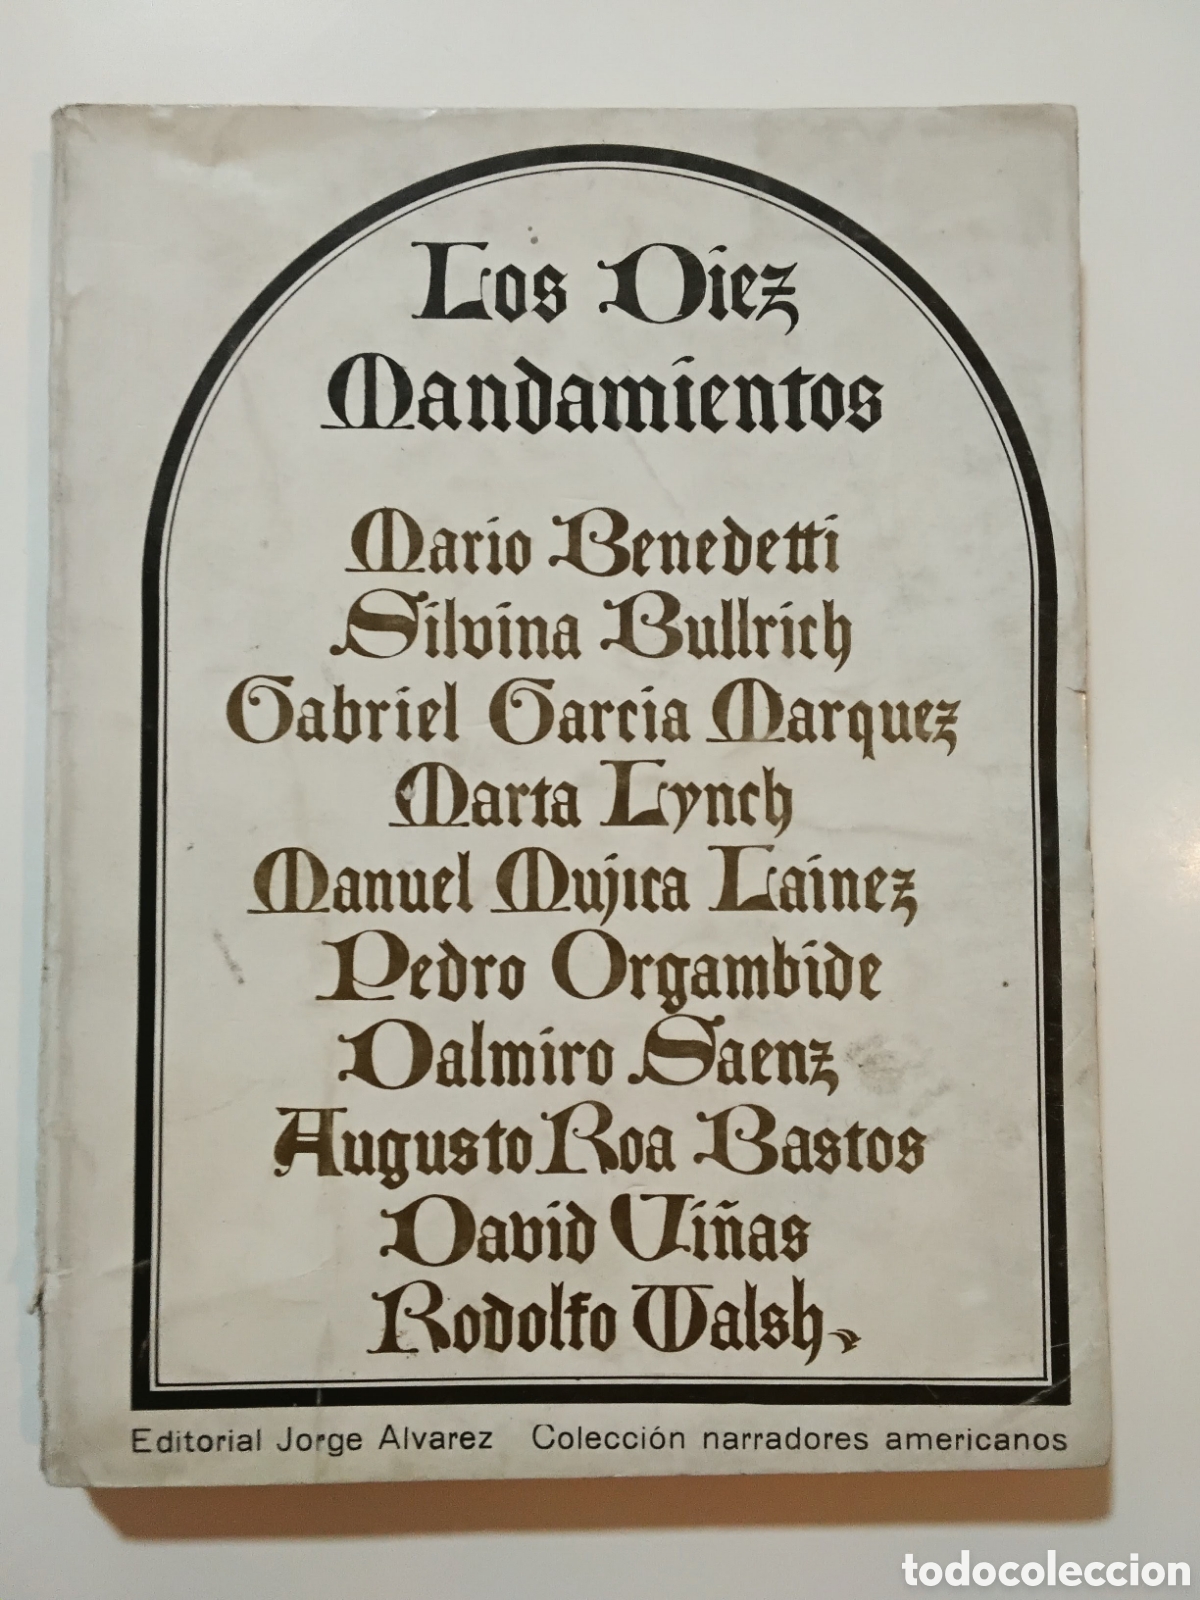 Los Diez
Mandamientos
Mario Benedetti
Silvina Bullrich
Gabriel Garcia Marquez
Marta Lynch
Manuel Mujica Lainez
Pedro Orgambide
Dalmiro Saenz
Augusto Roa Bastos
David Viñas
Rodolfo Walsh
Editorial Jorge Alvarez Colección narradores americanos
todocoleccion